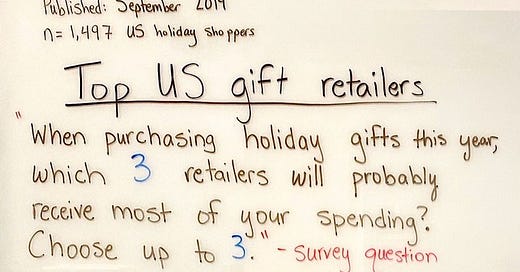 Published: September 2019
n= 1,497 US holiday shoppers
Top US gift retailers
"When purchasing holiday gifts this year,
which 3 retailers will probably
receive most of your spending?
Choose up to 3." - survey question